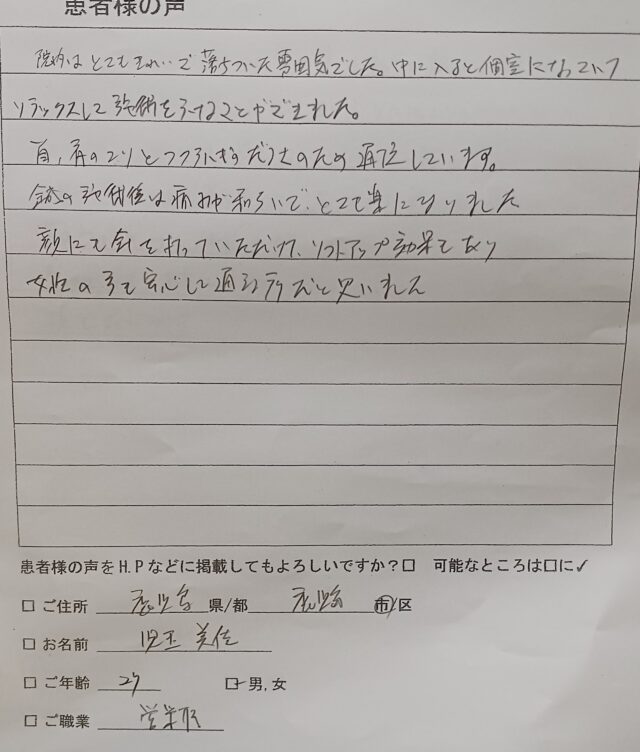 患者様の声
院内はとてもきれいで落ちついた雰囲気でした。中に入ると個室になっていて
リラックスして施術をうけることができました。
首、肩のコリとフクラハギのだるさのため通院しています。
鍼の施術後は痛みが和らいで、とても楽になりました
顔にも針を打っていただけて、リフトアップ効果もあり
女性の方も安心して通える所だと思いました
患者様の声をH.Pなどに掲載してもよろしいですか?□ 可能なところは□に✓
□ ご住所 鹿児島 県/都 鹿児島 市/区
□ お名前 児玉 美佳
□ ご年齢 27 □ 男,女
□ ご職業 営業職